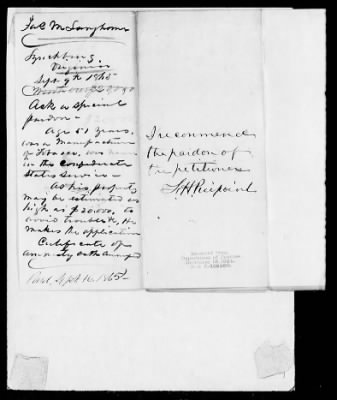 Jas M Langhorne
Lynchburg,
Virginia
Sept 9th 1865
Worth over $20,000
Ask a special
pardon—
Age 51 years,
was a Manufacturer
of Tobacco, was never
in the Confederate
States service—
As his property
may be estimated as
high as $20,000, to
avoid trouble &c, He
makes the application
Certificate of
amnesty oath annexed
Pard. Sept 16. 1865
I recommend
the pardon of
the petitioner
F. H. Peirpoint
Received from
Department of Justice